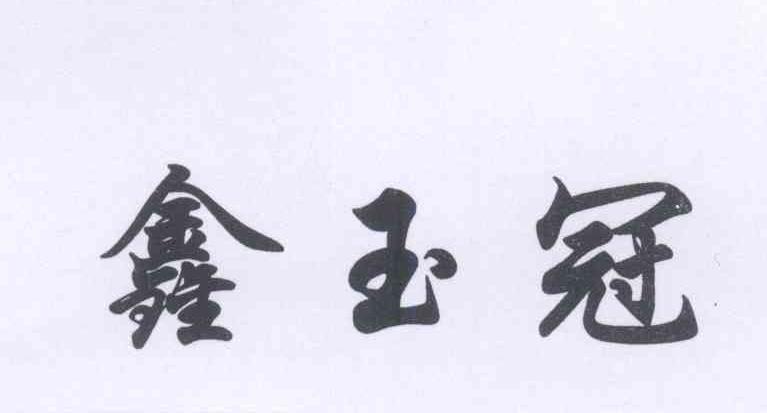 鑫玉冠